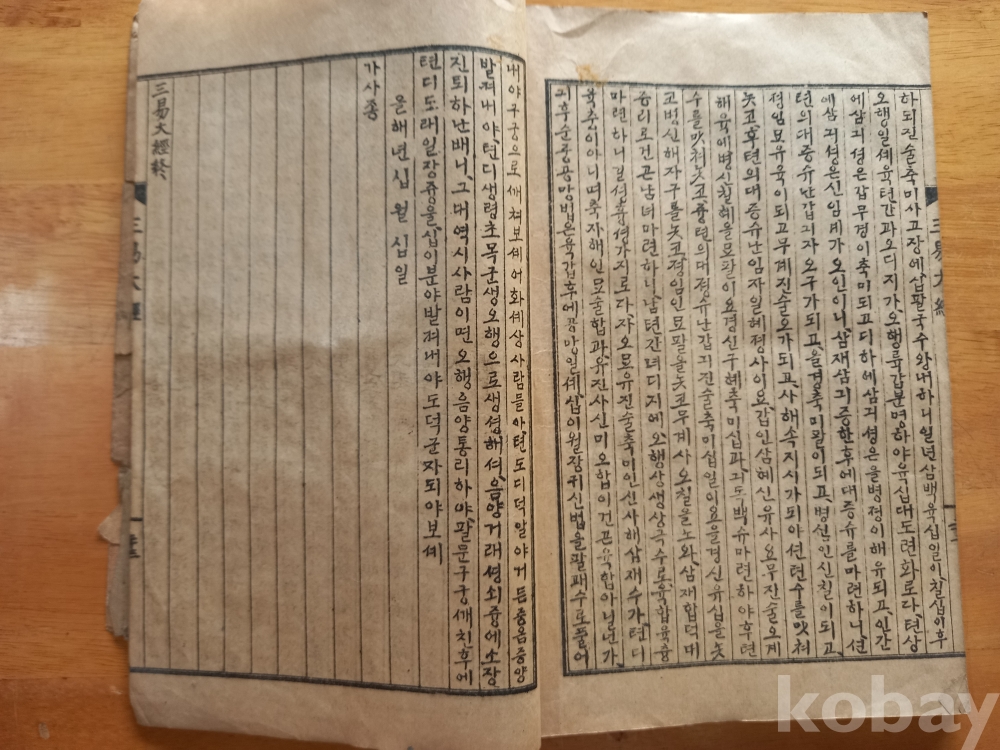 하되진술축미사고장에,삽팔국수왕내하니일년삼백육십일이칠십이후
오행일셰육텬간과오디지가,오행륙갑분명하야육십대도련화로다,텬상
에삼긔셩은갑무경이축미되고디하에삼긔셩은을병졍이해유되고,인간
에삼긔셩은신임계가오인이니,삼재삼긔증한후에대증슈를마련하니,션
텬의대증슈난갑긔자오구가되고,을경축미팔이되고,병신인신칠이되고
졍임묘유육이되고무계진술오가되고,사해속지사가되야션텬수를맛쳐
놋코,후텬의대증슈난임자일혜졍사이요,갑인삼혜신유사요무진술오계
해육에병신칠혜을묘팔이요경신구혜축미십과,긔도백슈마련하야후텬
수를맛쳐놋코,즁텬의대졍슈난갑긔진술축미십일이요을경신유십을놋
고병신해자구를놋코졍임인묘팔을놋코무계사오칠을노와,삼재합덕대
증리로건곤남녀마련하니,남텬간녀디지에오행상생상극수로육합육츙
마련하니길셩흉셩여가지로다,자오묘유진술축미인신사해삼재수가텬디
륙츙이아니며축자해인묘술합과,유진사신미오합이건곤육합아닐넌가,
긔후순즁공망법은육갑후에공망일셰,십이월장귀신법을팔괘수로풀어
三易大經
내야구궁으로새쳐보셰어화셰상사람들아텬도디덕알야거든증음증양
발켜내야텬디생령초목군생오행으로생셩해셔,음양거래셩쇠즁에소장
진퇴하난배니,그대역시사람이면오행음양통리하야,팔문구궁새친후에
텬디도래일장즁을십이분야발켜내야도덕군자되야보셰
올해년십월십일
가사죵
三易大經終
三易大經